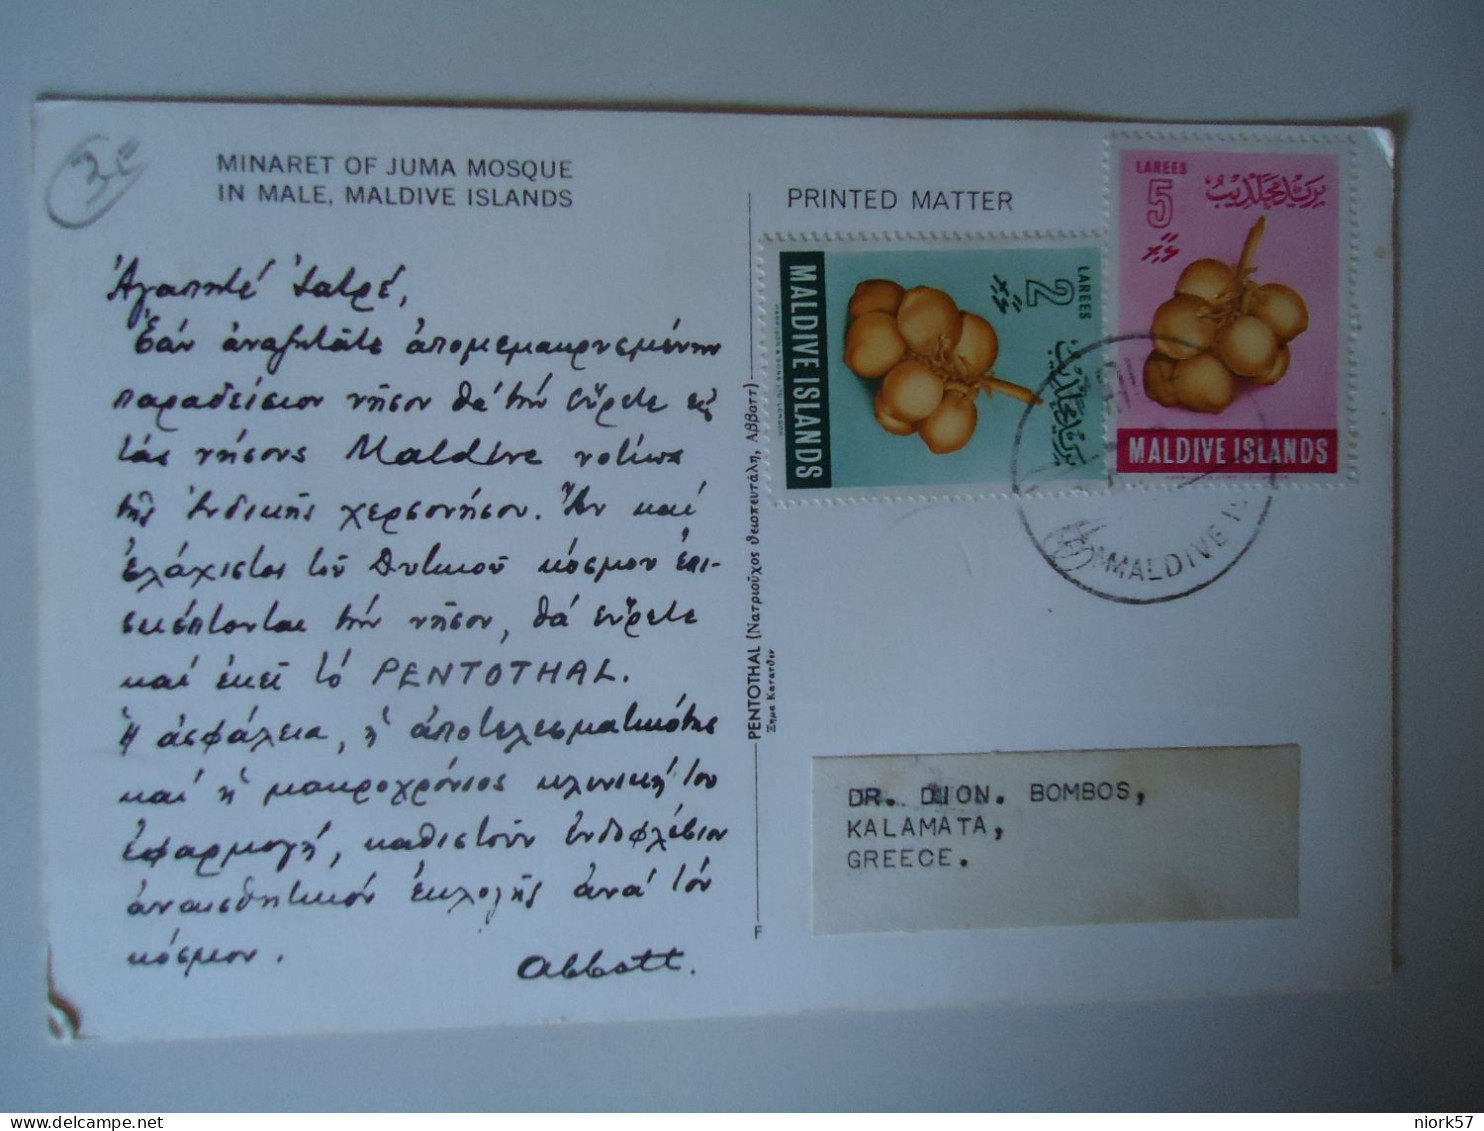 3€
MINARET OF JUMA MOSQUE
IN MALE, MALDIVE ISLANDS
Ἀγαπητέ Ἰατρέ,
Ἐάν ἀναζητᾶτε ἀπομεμακρυσμένην
παραδείσιον νῆσον θά τήν εὕρετε εἰς
τάς νήσους Maldive νοτίως
τῆς Ἰνδικῆς χερσονήσου. Ἄν καί
ἐλάχιστοι τοῦ Δυτικοῦ κόσμου ἐπι-
σκέπτονται τήν νῆσον, θά εὕρετε
καί ἐκεῖ τό PENTOTHAL.
Ἡ ἀσφάλεια, ἡ ἀποτελεσματικότης
καί ἡ μακροχρόνιος κλινική του
ἐφαρμογή, καθιστοῦν ἐνδοφλέβιον
ἀναισθητικόν ἐκλογῆς ἀνά τόν
κόσμον.
Abbott.
PENTOTHAL (Νατριοῦχος θειοπεντάλη, Ἄββοττ)
Σῆμα Κατατεθέν
F
PRINTED MATTER
MALDIVE ISLANDS
2
LAREES
HARRISON & SONS LTD LONDON
LAREES
5
MALDIVE ISLANDS
MALDIVE IS
DR. DION. BOMBOS,
KALAMATA,
GREECE.
niork57